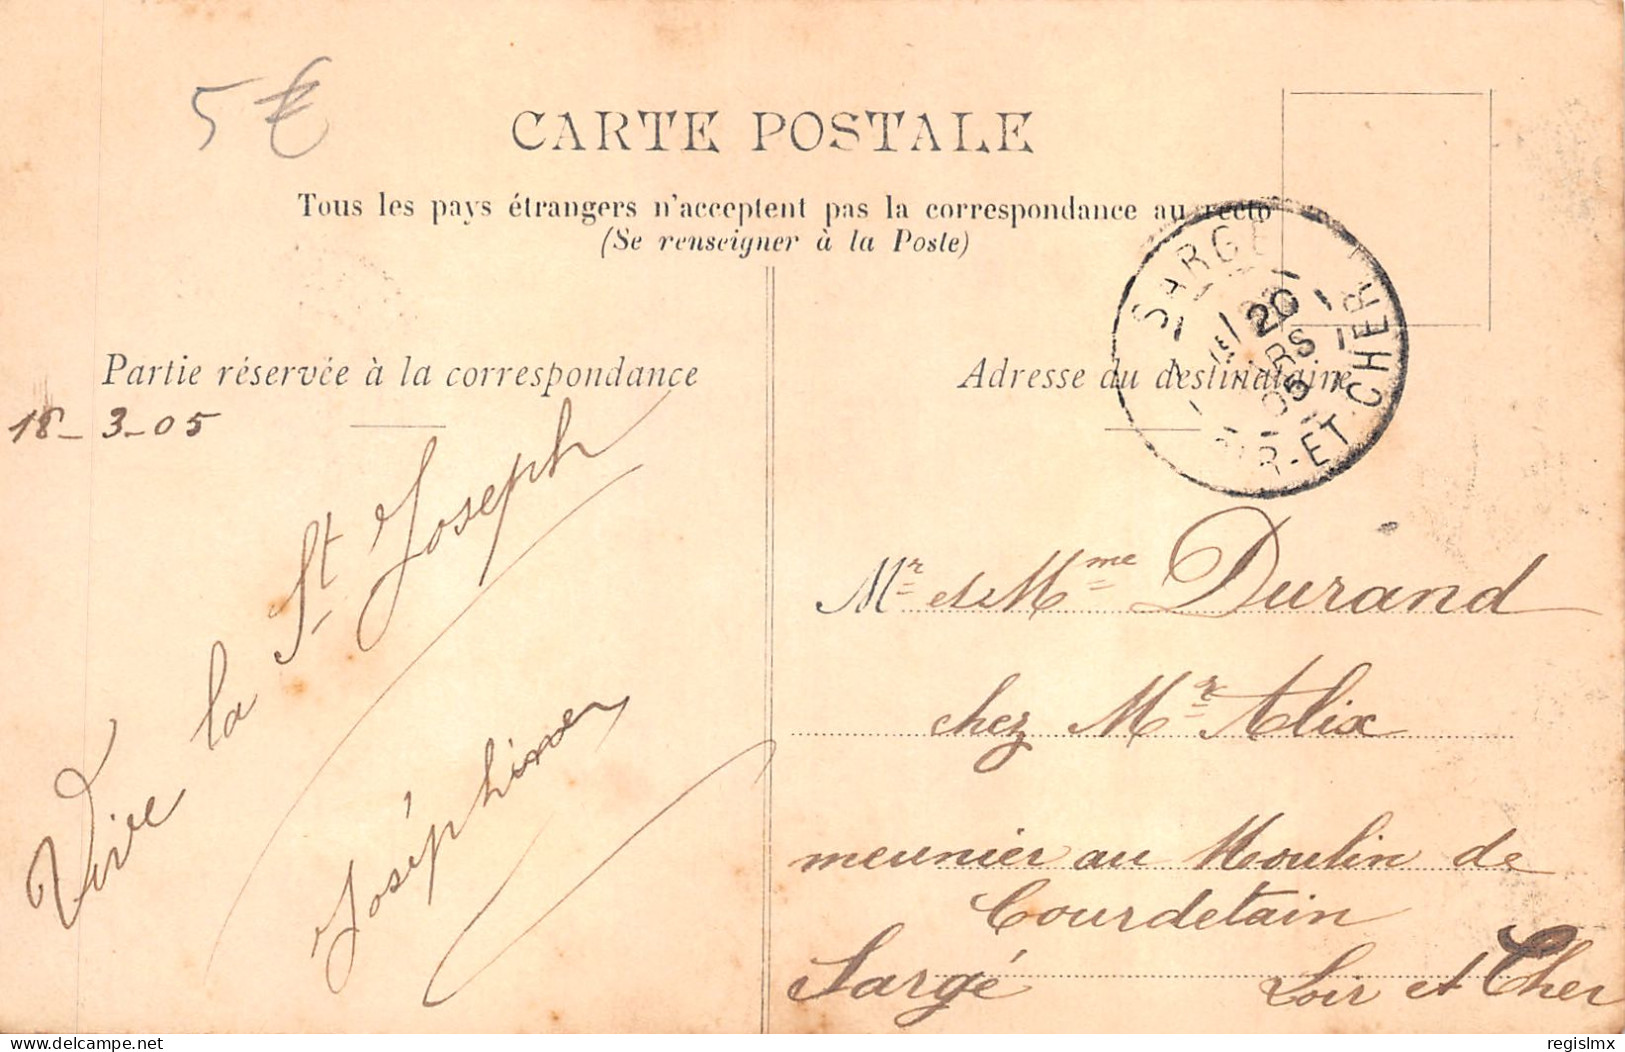 5€
CARTE POSTALE
Tous les pays étrangers n'acceptent pas la correspondance au recto
(Se renseigner à la Poste)
Partie réservée à la correspondance
18-3-05
Vive la St Joseph
Joséphine
Adresse du destinataire
SARGÉ
20
MARS
05
LOIR-ET-CHER
Mr et Mme Durand
chez Mr Alix
meunier au Moulin de
Courdetain
Sargé Loir et Cher
delcampe.net
regislmx